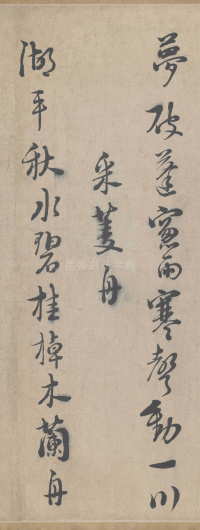 夢破蓬窗雨寒聲動一川
采菱舟
湖平秋水碧桂棹木蘭舟